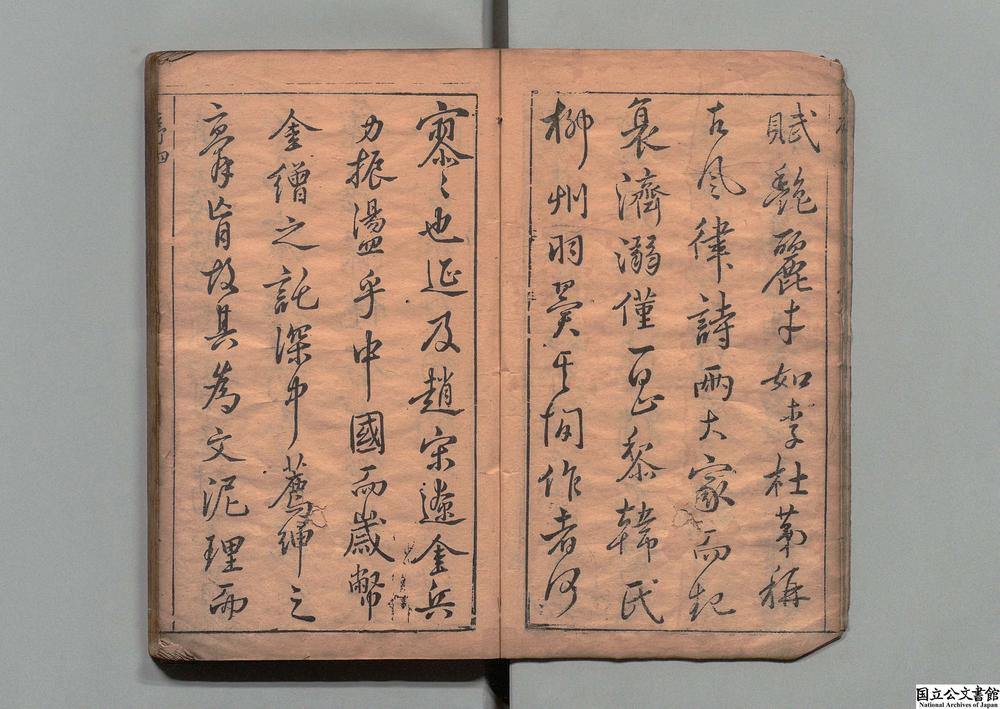 賦艷麗才如李杜第稱
古風律詩兩大家而起
衰濟溺僅一昌黎韓氏
柳州羽翼其間作者何
寥々也延及趙宋遼金兵
力振盪乎中國而歲幣
金繒之說深中薦紳之
膏肓故其為文泥理而
序四
国立公文書館
National Archives of Japan